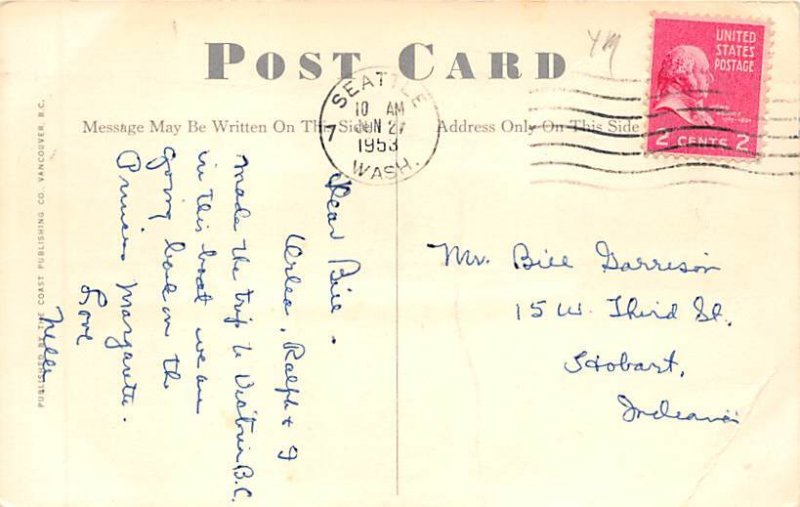 POST CARD
Message May Be Written On This Side
Address Only On This Side
SEATTLE
7
10 AM
JUN 27
1953
WASH.
UNITED
STATES
POSTAGE
2 CENTS 2
Dear Bill.
Ralph + I
made the trip to Victoria B.C.
in this boat we are
going back on the
Princess Margarete.
Love
Nelle.
Mr. Bill Garrison
15 W. Third St.
Hobart,
Indiana
PUBLISHED BY THE COAST PUBLISHING CO., VANCOUVER, B.C.